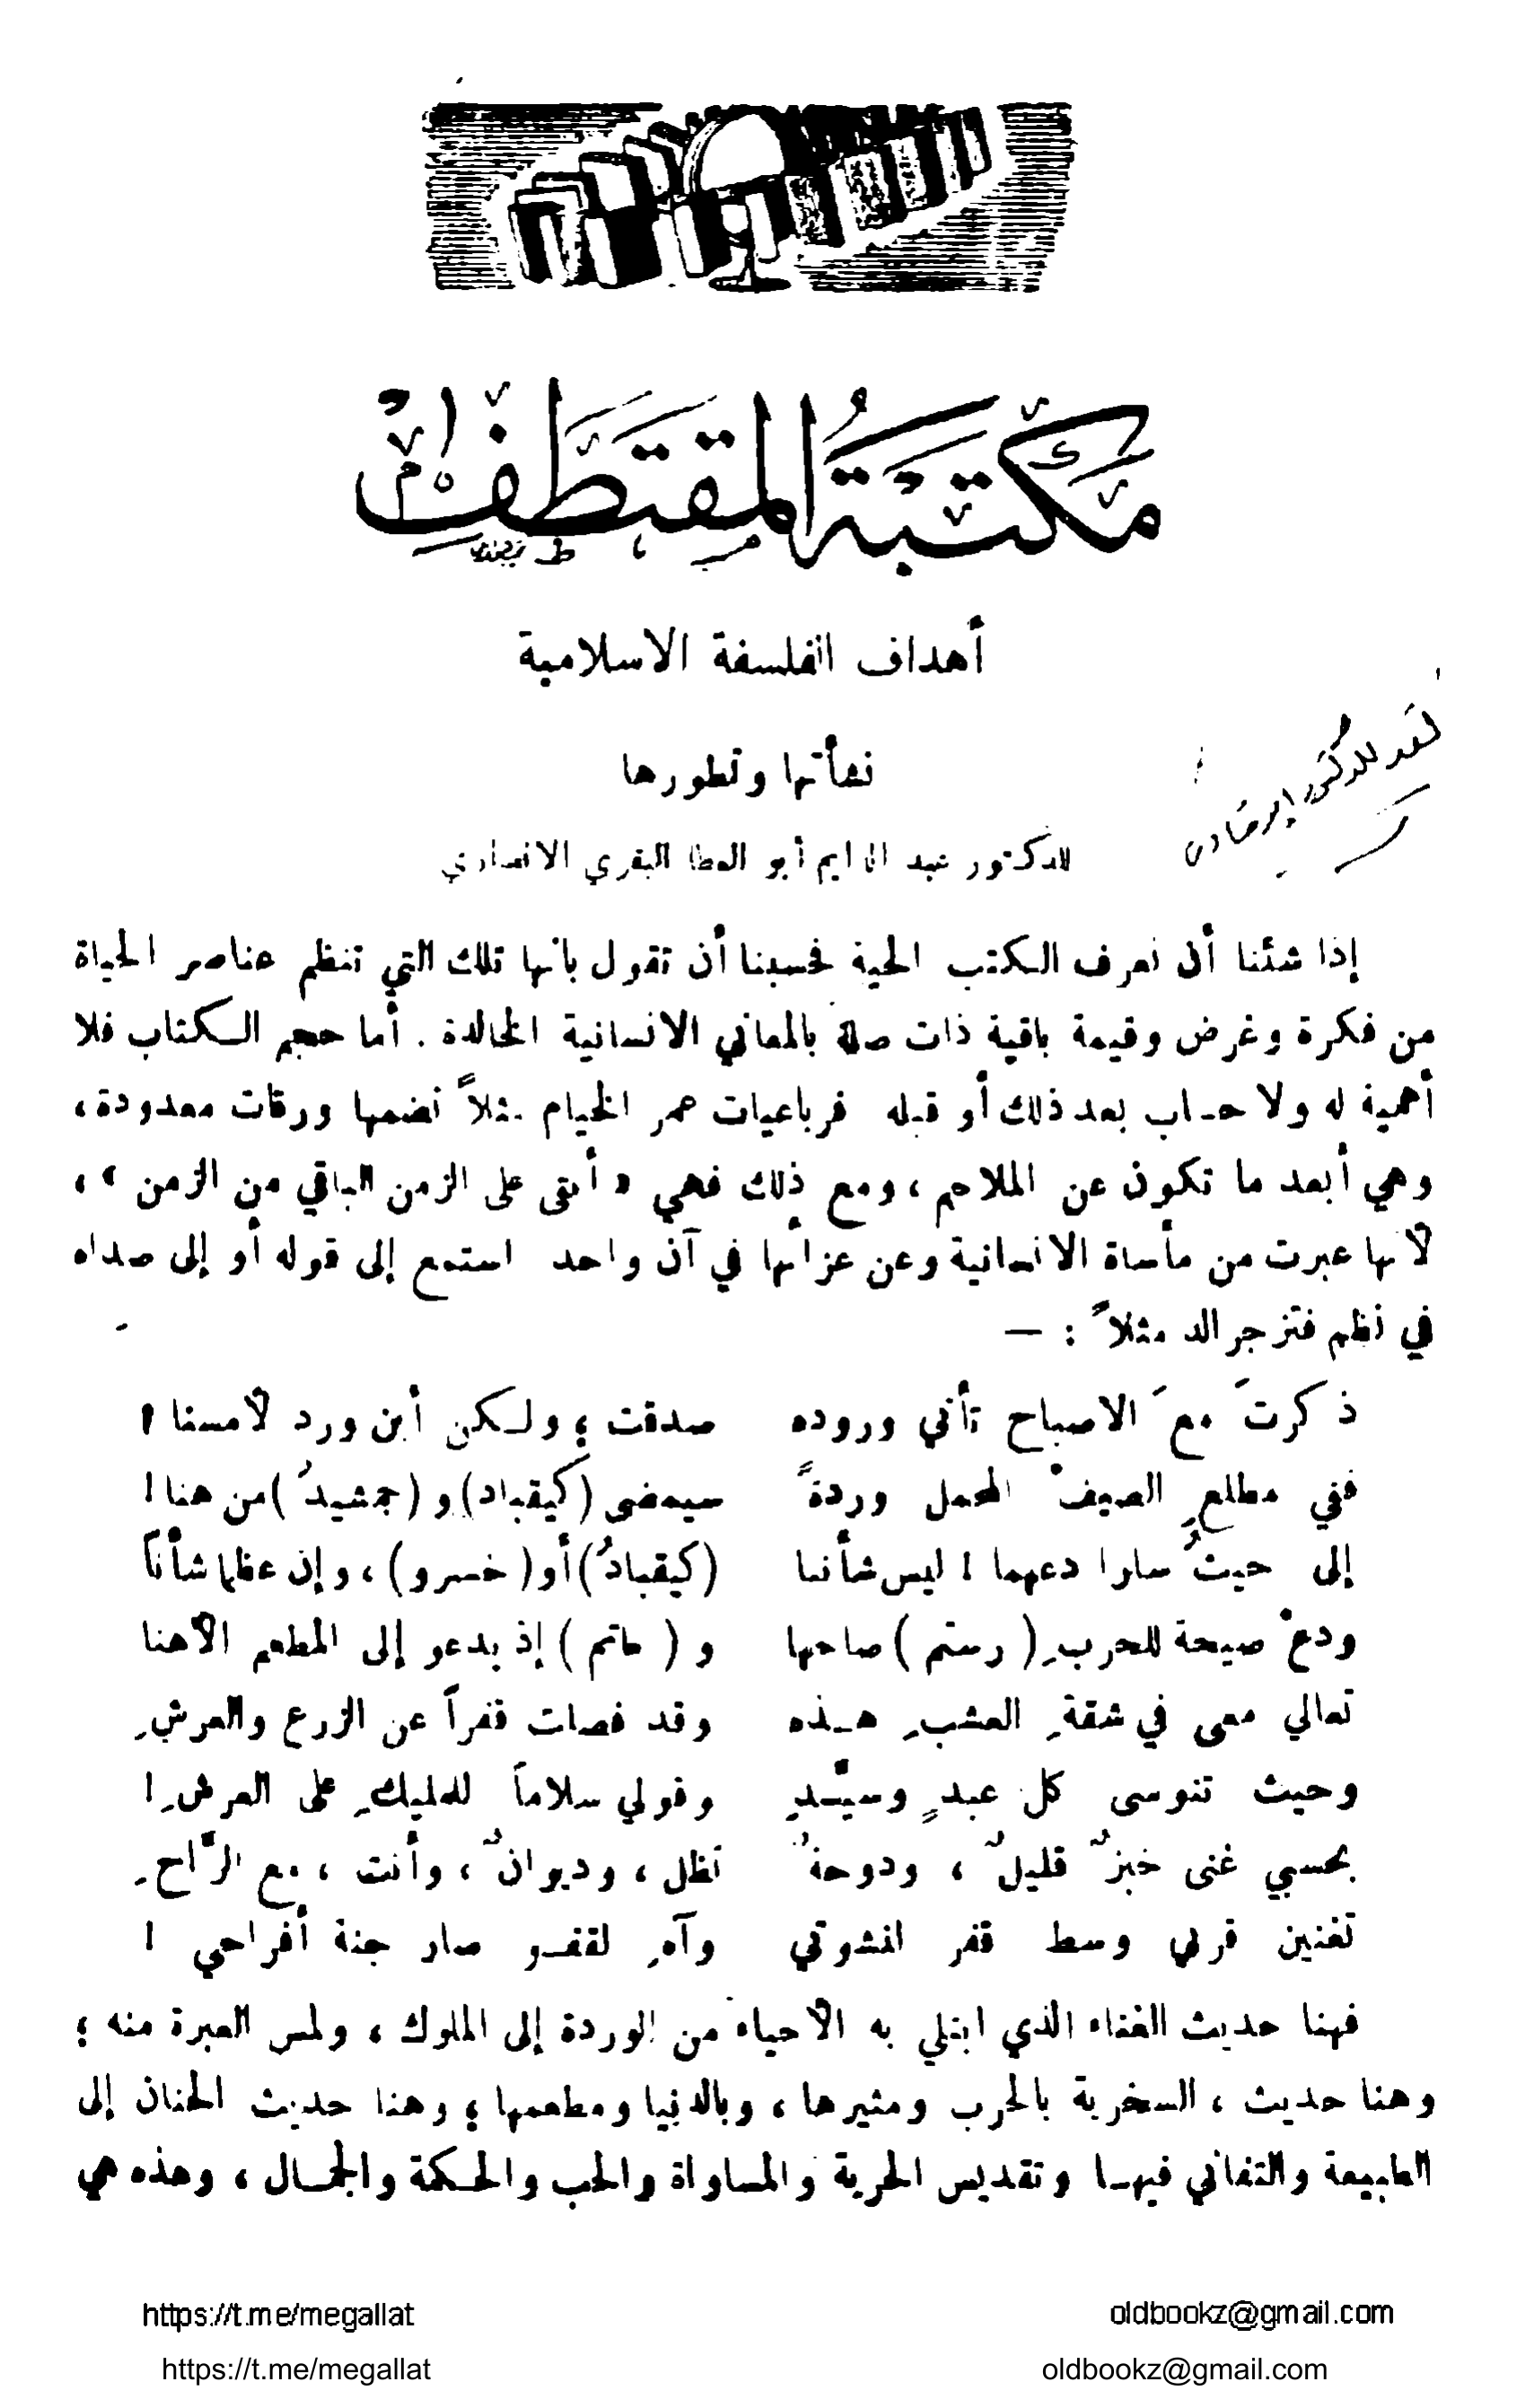 مكتبة المقتطف
أهداف الفلسفة الاسلامية
نشأتها وتطورها
للدكتور عبد الدايم أبو العطا البقري الانصاري
إذا شئنا أن نعرف الكتب الحية فحسبنا أن نقول بأنها تلك التي تنظم عناصر الحياة
من فكرة وغرض وقيمة باقية ذات صلة بالمعاني الانسانية الخالدة . أما حجم الكتاب فلا
أهمية له ولا حساب بعد ذلك أو قبله فرباعيات عمر الخيام مثلاً تضمها ورقات معدودة ،
وهي أبعد ما تكون عن الملاحم ، ومع ذلك فهي « أبقى على الزمن الباقي من الزمن » ،
لأنها عبرت من مأساة الانسانية وعن عزائها في آن واحد استمع إلى قوله أو إلى صداه
في نظم فتزجرالد مثلاً : —
ذكرتَ معَ الاصباح تأتي وروده صدقت ؛ ولكن أين ورد لأمسنا ؟
ففي مطلعِ الصيف المحمل وردةً سيمضى (كيقباد) و (جمشيدُ) من هنا !
إلى حيثُ سارا دعهما ! ليس شأننا (كيقبادُ) أو (خسرو) ، وإن عظما شأناً
ودعْ صيحة للحربِ (رستم) صاحها و (حاتم) إذ يدعو إلى المطعم الأهنا
تعالي معى في شقةِ العشبِ هذه وقد فصلت قفراً عن الزرع والعرشِ
وحيث تنوسى كل عبدٍ وسيّدٍ وقولي سلاماً للمليكِ على العرشِ !
بحسبي غنى خبزٌ قليلٌ ، ودوحةٌ تظل ، وديوانٌ ، وأنت ، مع الرَّاحِ
تغنين قربي وسط قفر لنشوتي وآهِ لقفر صار جنة أفراحي !
فهنا حديث الفناء الذي ابتلي به الأحياء من الوردة إلى الملوك ، ولمس العبرة منه ؛
وهنا حديث ، السخرية بالحرب ومثيرها ، وبالدنيا ومطعمها ؛ وهنا حديث الحنان إلى
الطبيعة والتفاني فيها وتقديس الحرية والمساواة والحب والحكمة والجمال ، وهذه هي
https://t.me/megallat oldbookz@gmail.com
https://t.me/megallat oldbookz@gmail.com